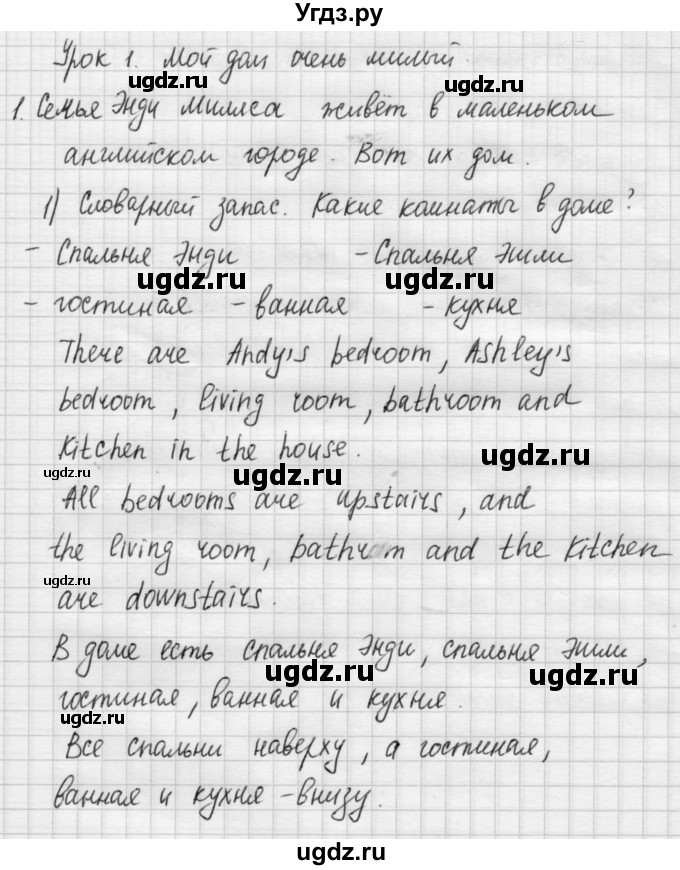 Угдз.ру
Урок 1. Мой дом очень милый.
ugdz.ru ugdz.ru
1. Семья Энди Миллса живёт в маленьком
английском городе. Вот их дом.
ugdz.ru
1) Словарный запас. Какие комнаты в доме?
- Спальня Энди - Спальня Эшли
ugdz.ru ugdz.ru
- гостиная - ванная - кухня
There are Andy's bedroom, Ashley's
bedroom, living room, bathroom and
kitchen in the house.
ugdz.ru ugdz.ru ugdz.ru
All bedrooms are upstairs, and
the living room, bathroom and the kitchen
ugdz.ru
are downstairs.
В доме есть спальня Энди, спальня Эшли,
ugdz.ru ugdz.ru
гостиная, ванная и кухня.
ugdz.ru
Все спальни наверху, а гостиная,
ванная и кухня - внизу.
ugdz.ru